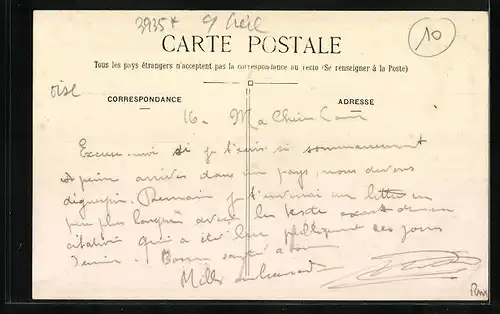 3935+ 9 Creil
10
CARTE POSTALE
Tous les pays étrangers n'acceptent pas la correspondance au recto (Se renseigner à la Poste)
oise
CORRESPONDANCE
ADRESSE
16. Ma Chère
Excuse-moi si je t'écris si sommairement
et peine arrivés dans un pays, nous devons
déguerpir. Demain je t'enverrai une lettre un
peu plus longue avec le texte exact de ma
citation qui a été lue publiquement ces jours
derniers. Bonne santé à
Mille